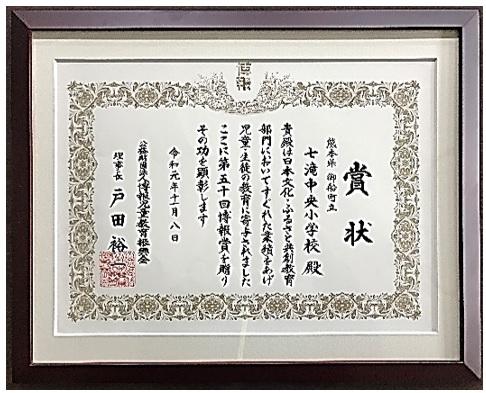 賞状
熊本県 御船町立
七滝中央小学校 殿
貴殿は日本文化・ふるさと共創教育
部門においてすぐれた業績をあげ
児童・生徒の教育に寄与されました
ここに第五十回博報賞を贈り
その功を顕彰します
令和元年十一月八日
公益財団法人博報児童教育振興会
理事長 戸田裕一